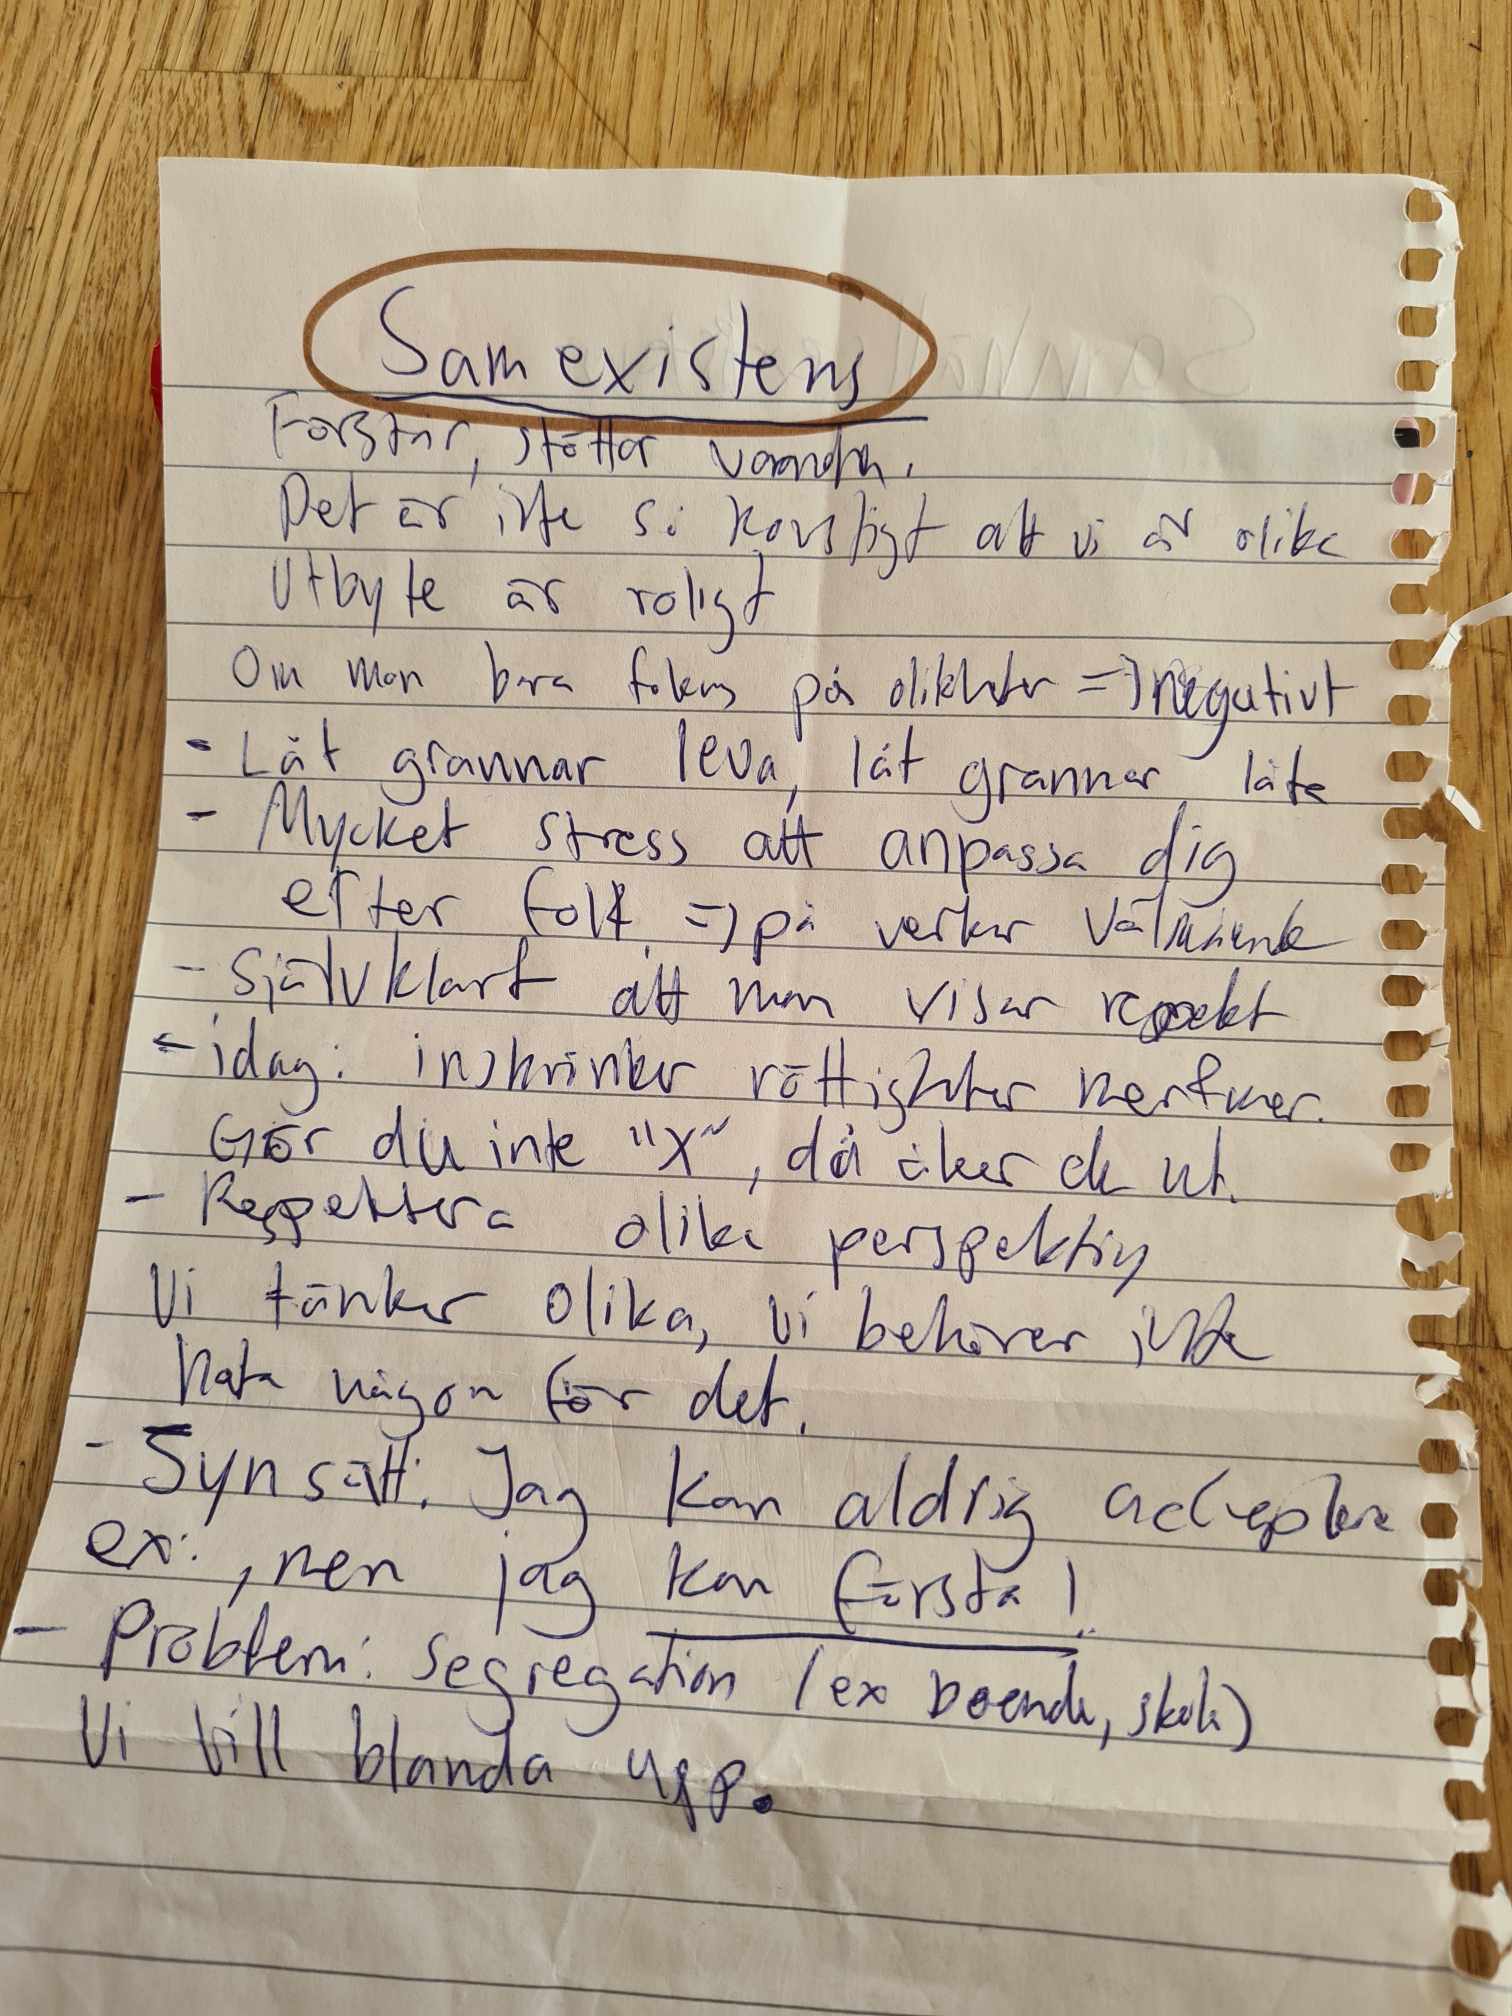 Samexistens
Förstår, stöttar varandra.
Det är inte så konstigt att vi är olika
Utbyte är roligt
Om man bara fokus på olikheter => negativt
- Låt grannar leva, låt grannar låta
- Mycket stress att anpassa dig
efter folk => påverkar välmående
- Självklart att man visar respekt
- idag: inskränker rättigheter mer & mer.
Gör du inte "X", då åker du ut.
- Respektera olika perspektiv
Vi tänker olika, vi behöver inte
hata någon för det.
- Synsätt: Jag kan aldrig acceptera
ex: , men jag kan förstå!
- Problem: segregation (ex boende, skola)
Vi vill blanda upp.